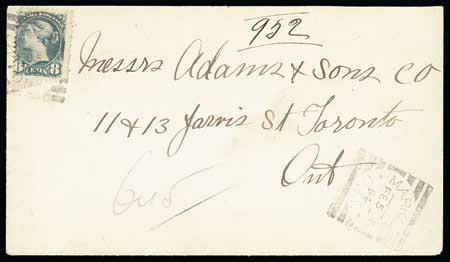 952
8 CENTS 8
Messrs Adams & Sons Co
11 & 13 Jarvis St Toronto
Ont
645
FE 5
94